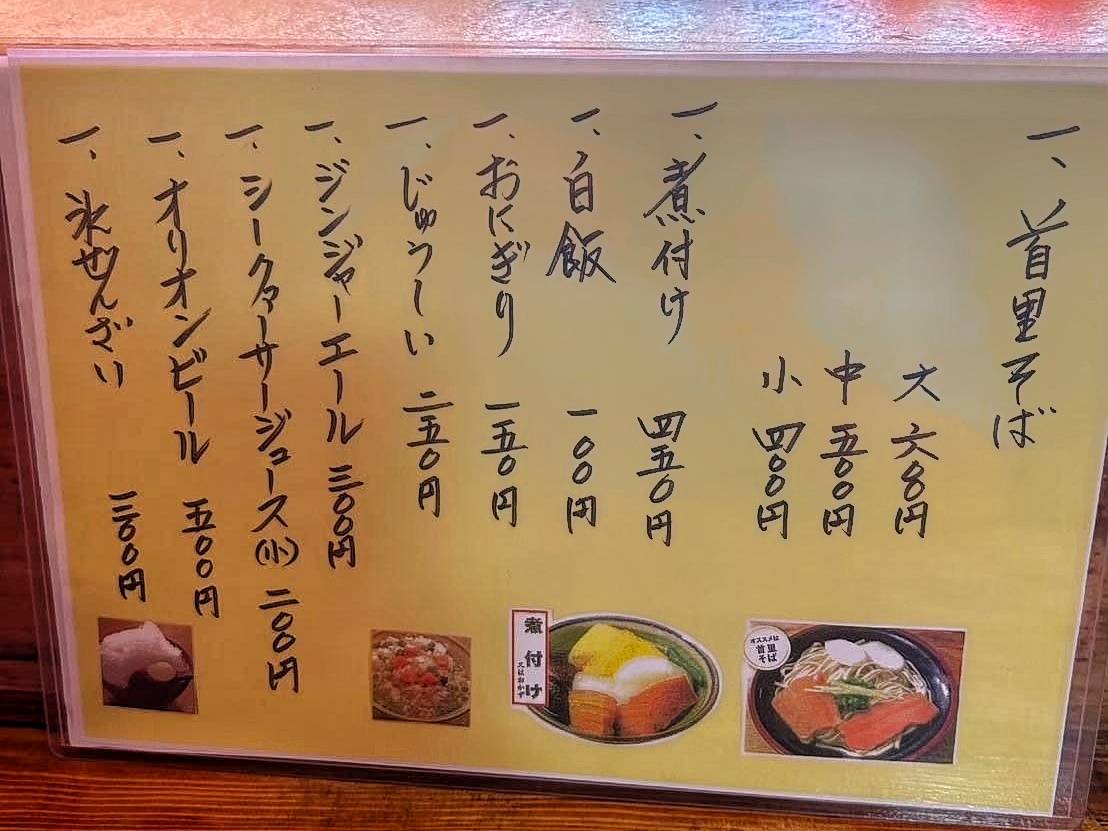 一、首里そば
大 六〇〇円
中 五〇〇円
小 四〇〇円
一、煮付け 四五〇円
一、白飯 一〇〇円
一、おにぎり 一五〇円
一、じゅうしい 二五〇円
一、ジンジャーエール 三〇〇円
一、シークァーサージュース(小) 二〇〇円
一、オリオンビール 五〇〇円
一、氷ぜんざい 三〇〇円
オススメは
首里
そば
煮付け
又はおかず